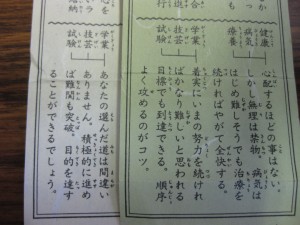 健康
病気
療養
心配するほどの事はない。
しかし無理は禁物。病気は
はじめ難しそうでも治療を
続ければやがて全快する。
学業
技芸
試験
着実にいまの努力を続けれ
ばかなり難しいと思われる
目標でも到達できる。順序
よく攻めるのがコツ。
学業
技芸
試験
あなたの選んだ道は間違い
ありません。積極的に進め
ば難関も突破、目的を達す
ることができるでしょう。